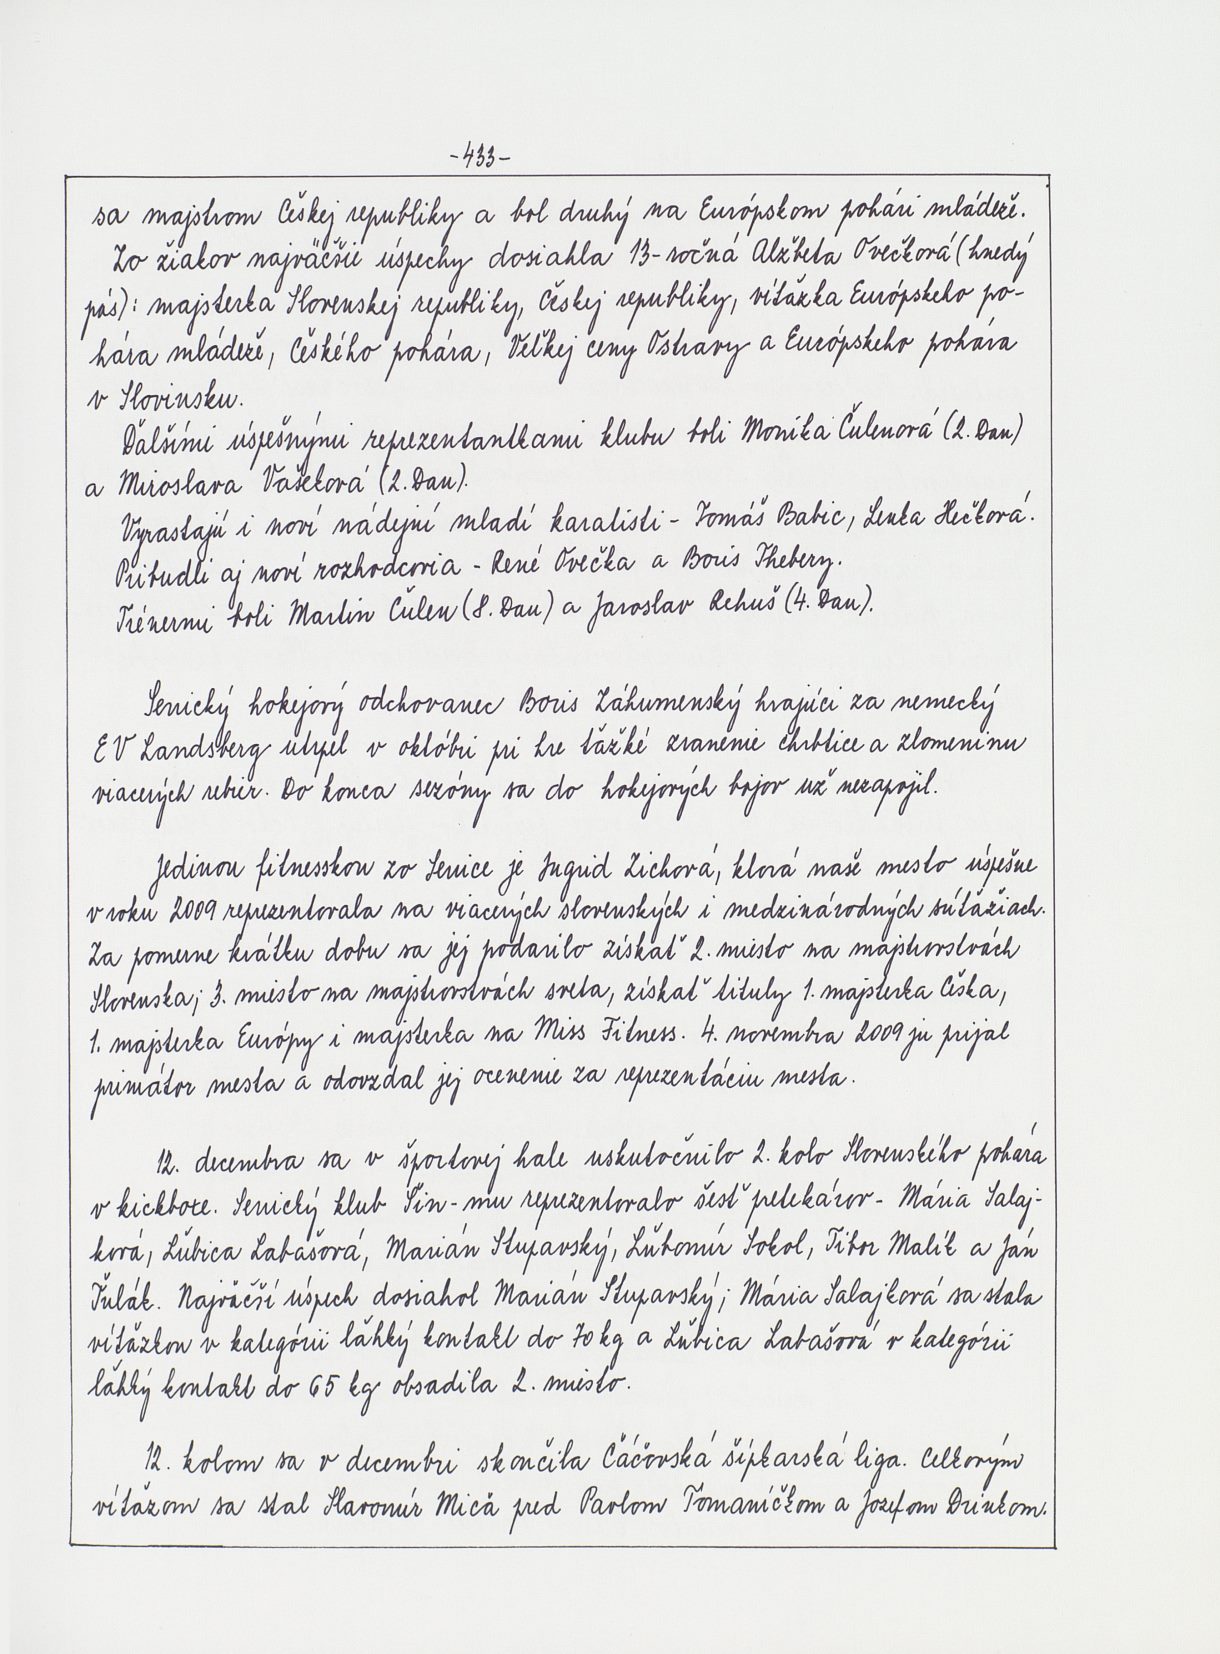 -433-
sa majstrom Českej republiky a bol druhý na Európskom pohári mládeže.
Zo žiakov najväčšie úspechy dosiahla 13-ročná Alžbeta Ovečková (hnedý
pás): majsterka Slovenskej republiky, Českej republiky, víťazka Európskeho po-
hára mládeže, Českého pohára, Veľkej ceny Ostravy a Európskeho pohára
v Slovinsku.
Ďalšími úspešnými reprezentantkami klubu boli Monika Čulenová (2. Dan)
a Miroslava Vašeková (2. Dan).
Vyrastajú i noví nádejní mladí karatisti - Tomáš Babic, Lenka Hečková.
Pribudli aj noví rozhodcovia - René Ovečka a Boris Thebery.
Trénermi boli Martin Čulen (8. Dan) a Jaroslav Rehuš (4. Dan).
Senický hokejový odchovanec Boris Záhumenský hrajúci za nemecký
EV Landsberg utrpel v októbri pri hre ťažké zranenie chrbtice a zlomeninu
viacerých rebier. Do konca sezóny sa do hokejových bojov už nezapojil.
Jedinou fitnesskou zo Senice je Ingrid Zichová, ktorá naše mesto úspešne
v roku 2009 reprezentovala na viacerých slovenských i medzinárodných súťažiach.
Za pomerne krátku dobu sa jej podarilo získať 2. miesto na majstrovstvách
Slovenska, 3. miesto na majstrovstvách sveta, získať tituly 1. majsterka Česka,
1. majsterka Európy i majsterka na Miss Fitness. 4. novembra 2009 ju prijal
primátor mesta a odovzdal jej ocenenie za reprezentáciu mesta.
12. decembra sa v športovej hale uskutočnilo 2. kolo Slovenského pohára
v kickboxe. Senický klub Šin-mu reprezentovalo šesť pretekárov - Mária Salaj-
ková, Ľubica Labašová, Marián Stupavský, Ľubomír Sokol, Tibor Malík a Ján
Ťulák. Najväčší úspech dosiahol Marián Stupavský; Mária Salajková sa stala
víťazkou v kategórii ľahký kontakt do 70 kg a Ľubica Labašová v kategórii
ľahký kontakt do 65 kg obsadila 2. miesto.
12. kolom sa v decembri skončila Čáčovská šípkarská liga. Celkovým
víťazom sa stal Slavomír Mičá pred Pavlom Tomaníčkom a Jozefom Drinkom.